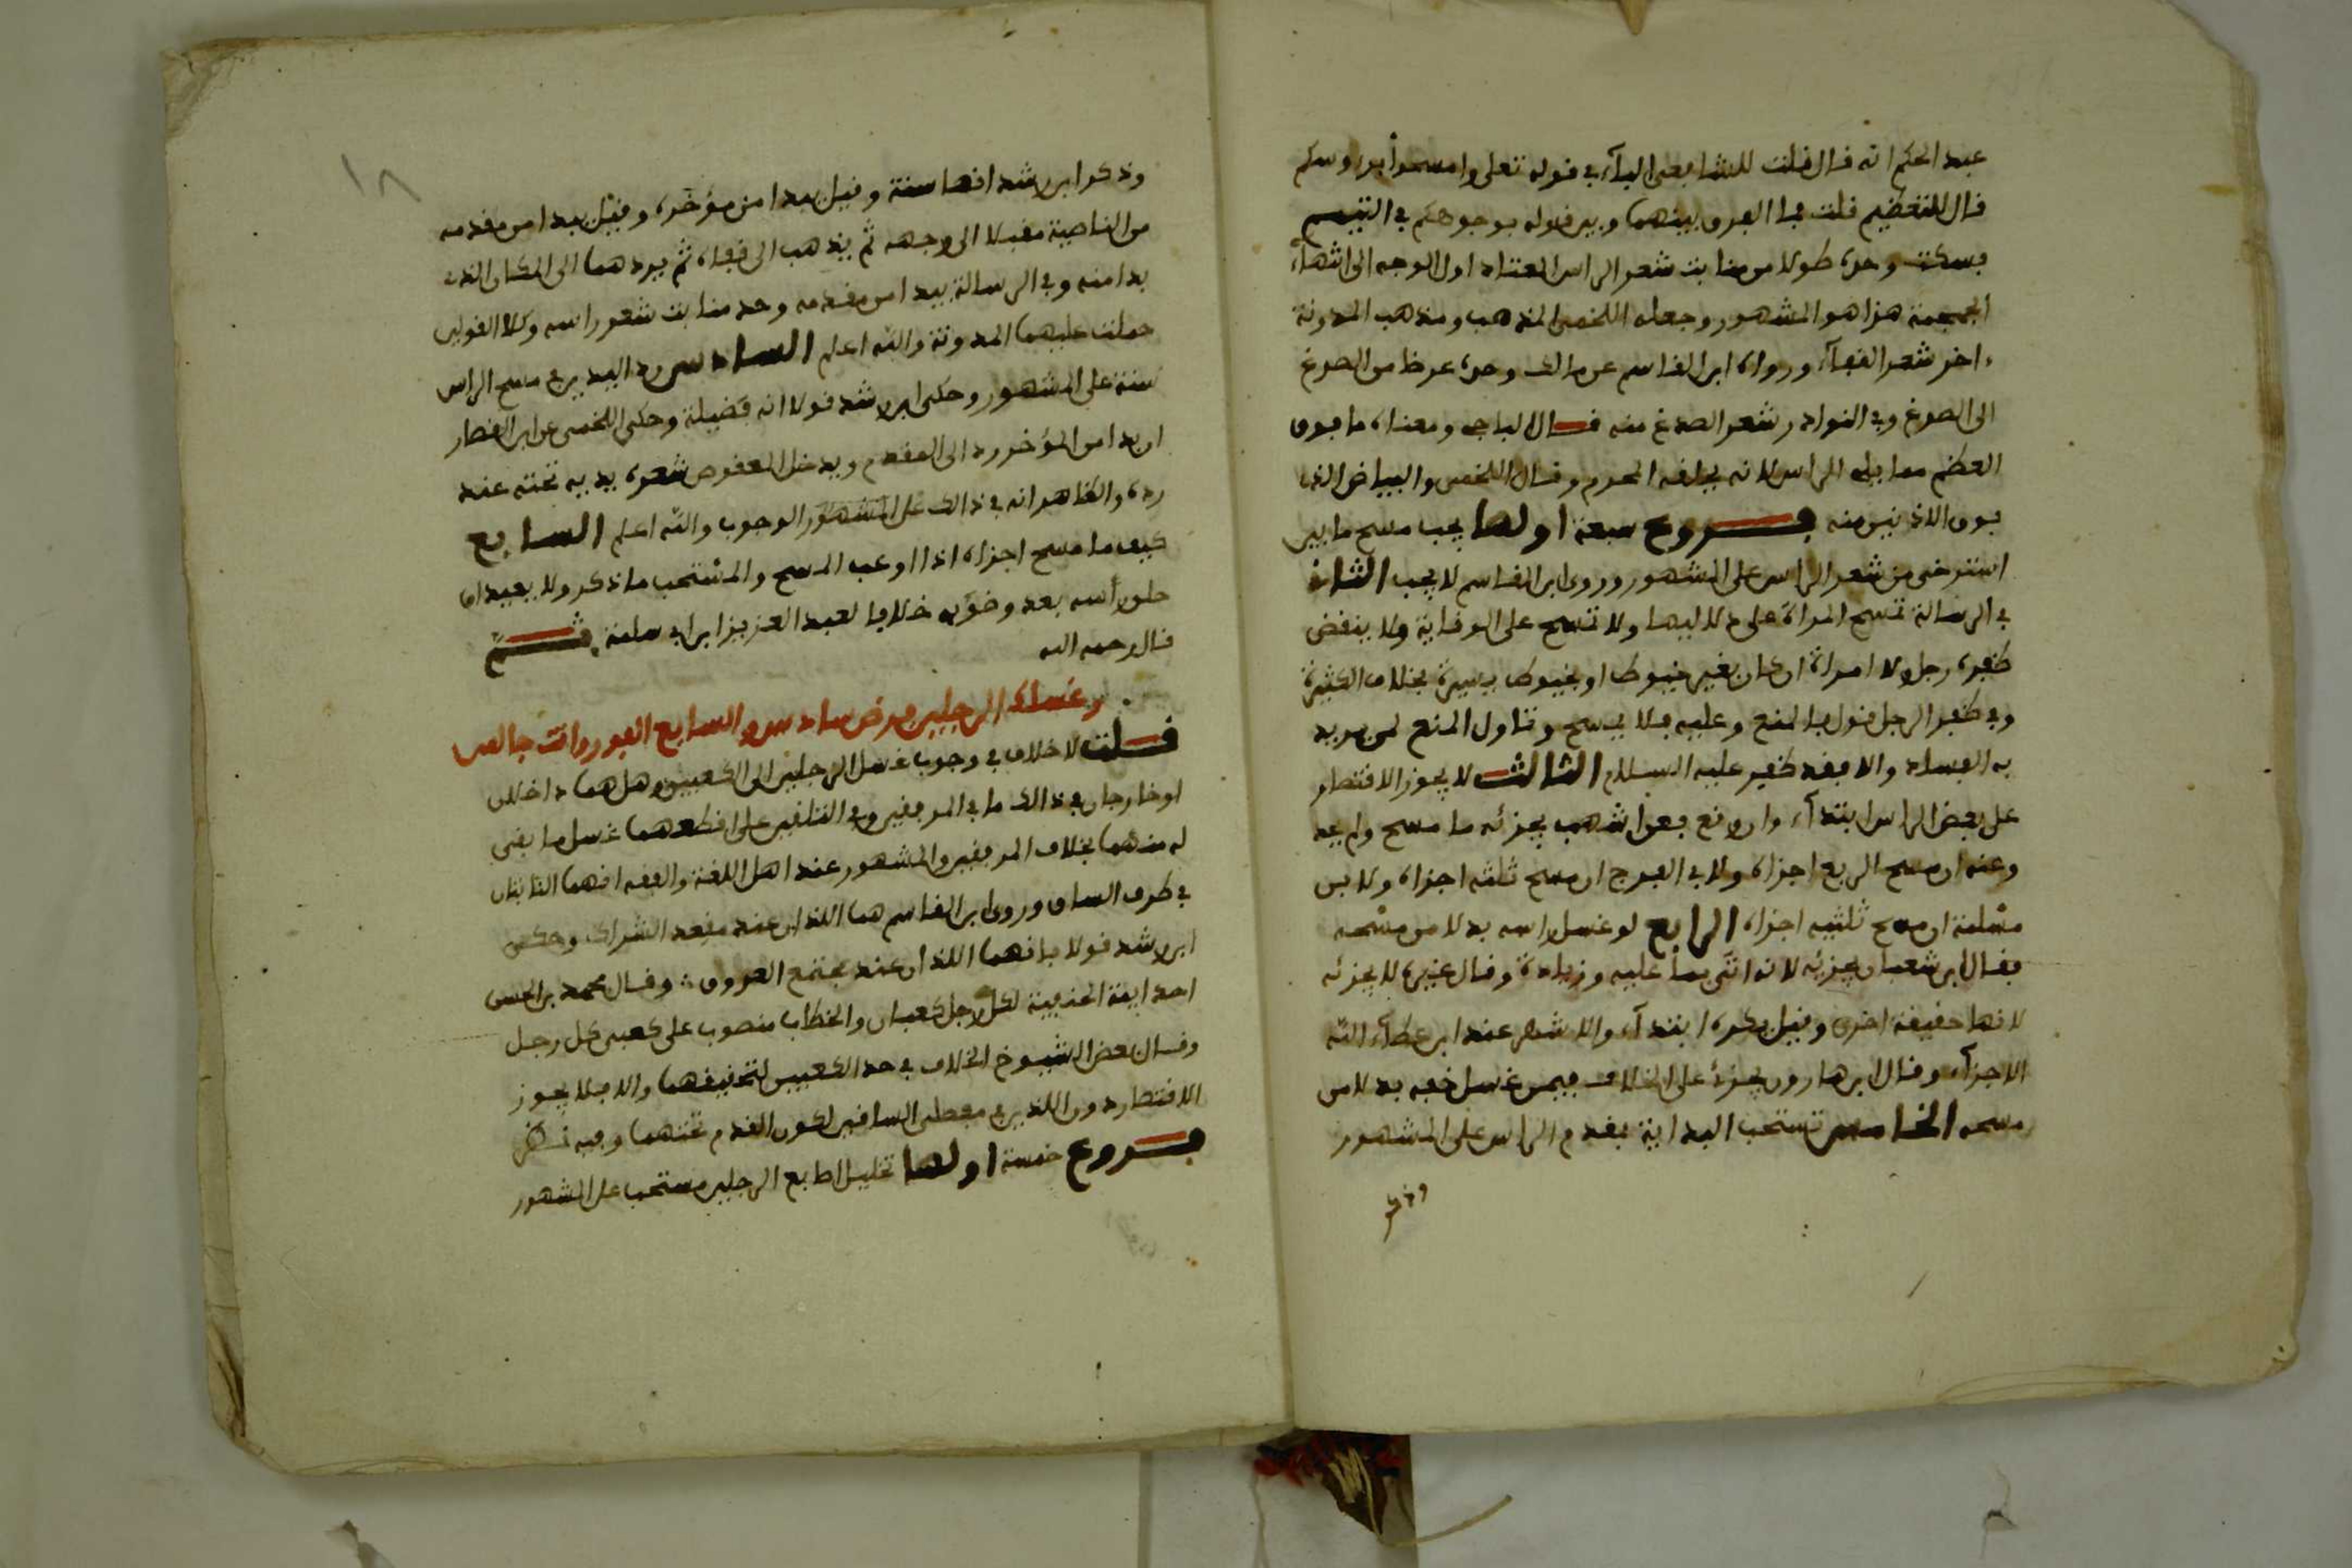 عبد الحكم انه قال قلت للشابعى البآء في قوله تعلى وامسحوا برءوسكم
قال للتعظيم قلت بما الفرق بينهما وبين قوله بوجوهكم في التيمم
فسكت وحده طولا من منابت شعر الراس المعتاد اول الوجه الى انتهآء
الجمجمة هذا هو المشهور وجعله اللخمى المذهب ومذهب المدونة
ءاخر شعر القفآء ورواه ابن القاسم عن مالك وحده عرضا من الصدغ
الى الصدغ وفي النوادر شعر الصدغ منه قال الباجى ومعناه ما فوق
العظم مما يلى الراس لانه يحلقه المحرم وقال اللخمى والبياض الذى
فوق الاذنين منه فروع سبعة اولها يجب مسح ما بين
استرخى من شعر الراس على المشهور وروى ابن القاسم لا يجب الثانى
في الرسالة تمسح المراة على دلاليها ولا تمسح على الوقاية ولا ينقض
ظفره رجل ولا امراة ان كان بغير خيوط او بخيوط يسيرة بخلاف الكثيرة
وفي ظفر الرجل قول بالمنع وعليه فلا يمسح وتناول المنع لمن يريد
به الفساد والا فقد ظفر عليه السلام الثالث لا يجوز الاقتصار
على بعض الراس ابتدآء وان وقع فعن اشهب يجزئه ما مسح ولم يحد
وعنه ان مسح الربع اجزاه ولابى الفرج ان مسح ثلثه اجزاه ولابن
مسلمة ان مسح ثلثيه اجزاه الرابع لو غسل راسه بدلا من مسحه
فقال ابن شعبان يجزئه لانه اتى بما عليه وزيادة وقال غيره لا يجزئه
لانها حقيقة اخرى وقيل يكره ابتدآء والاشهر عند ابن عطآء الله
الاجزآء وقال ابن هارون يجزئ على الخلاف فيمن غسل خفه بدلا من
مسحه الخامس تستحب البداية بمقدم الراس على المشهور
وذكر
١٨
وذكر ابن رشد انها سنة وقيل يبدا من مؤخره وقيل يبدا من مقدمه
من الناصية مقبلا الى وجهه ثم يذهب الى قفاه ثم يردهما الى المكان الذى
بدا منه وفي الرسالة يبدا من مقدمه وحد منابت شعر راسه وكلا القولين
حملت عليهما المدونة والله اعلم السادس رد اليدين في مسح الراس
سنة على المشهور وحكى ابن رشد قولا انه فضيلة وحكى اللخمى عن ابن القصار
ان بدا من المؤخر رد الى المقدم ويدخل المعقوص شعره يديه تحته عند
رده والظاهر انه في ذالك على المشهور الوجوب والله اعلم السابع
كيف ما مسح اجزاه اذا اوعب المسح والمستحب ما ذكر ولا يعيد ان
حلق رأسه بعد وضوءه خلافا لعبد العزيز ابن ابى سلمة ثم
قال رحمه الله
وغسله الرجلين فرض سادس والسابع الفور وانت جالس
قلت لا خلاف في وجوب غسل الرجلين الى الكعبين وهل هما داخلان
او خارجان في ذالك ما في المرفقين وفي التلقين على اقطعهما غسل ما بقى
له منهما بخلاف المرفقين والمشهور عند اهل اللغة والفقه انهما الناتئان
في طرف الساق وروى ابن القاسم هما اللذان عند مقعد الشراك وحكى
ابن رشد قولا بانهما اللذان عند مجتمع العروق وقال محمد بن الحسن
احد ايمة الحنفية لكل رجل كعبان والخطاب منصوب على كعبى كل رجل
وقال بعض الشيوخ الخلاف في حد الكعبين لتحقيقهما والا فلا يجوز
الاقتصار دون اللذين في مفصلى الساقين لكون القدم تحتهما وفيه نظر
فروع خمسة اولها تخليل اصابع الرجلين مستحب على المشهور